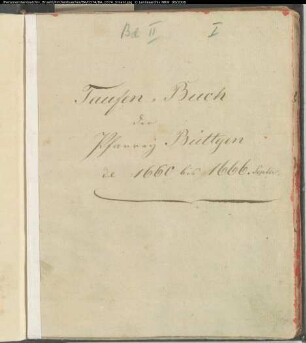 Bd II I
Taufen-Buch
der
Pfarrey Büttgen
de 1660 bis 1666